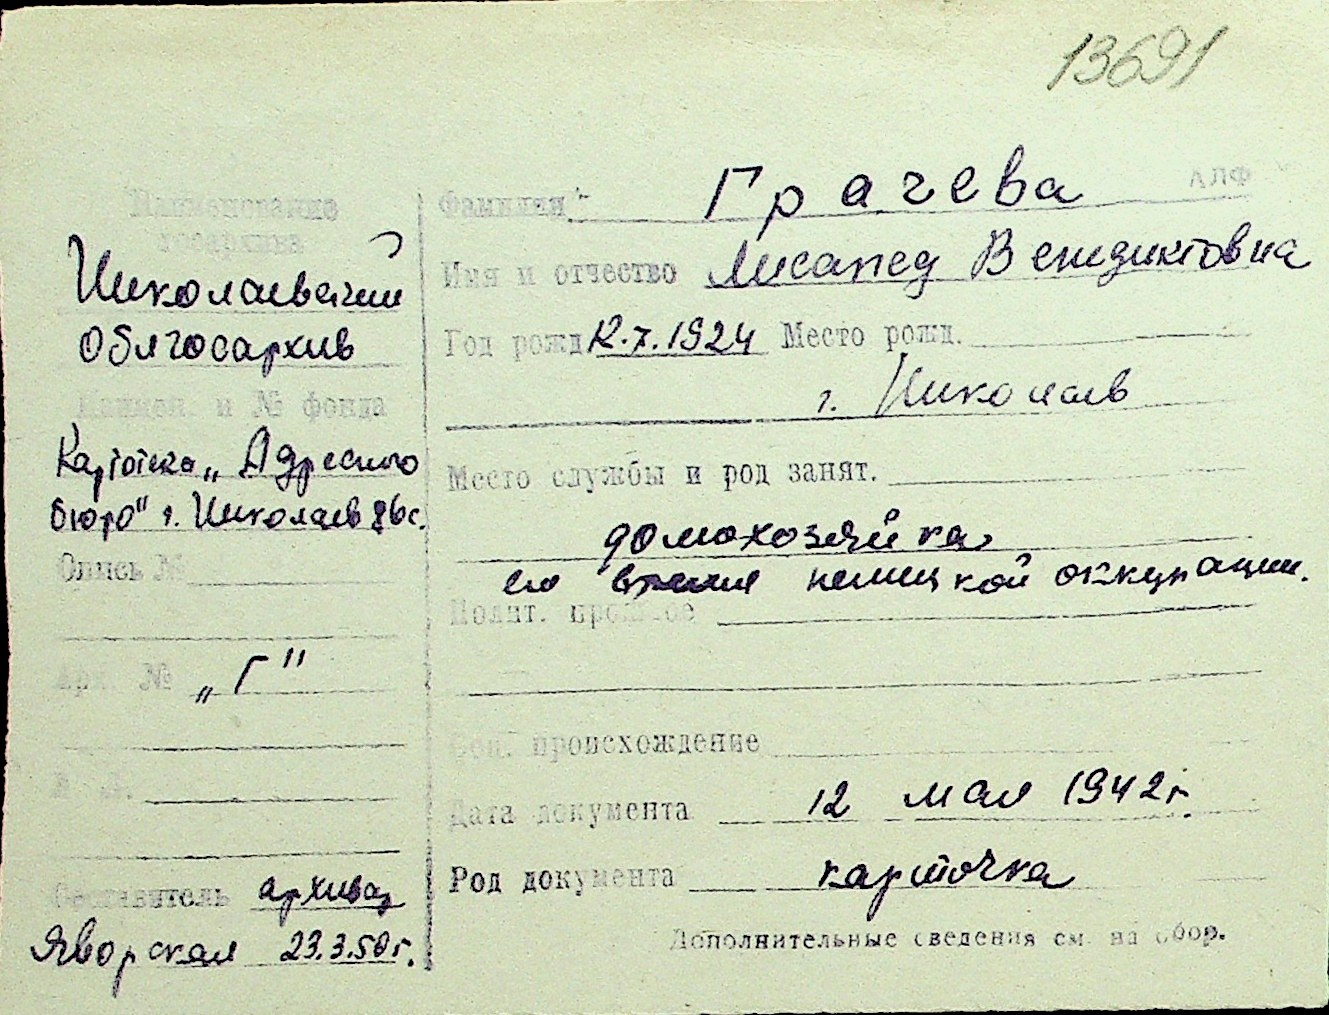 13691
АЛФ
Наименование
госархива
Николаевский
Облгосархив
Наимен. и № фонда
Картотека „Адресного
бюро" г. Николаев
Опись №
Арх. № „Г"
Составитель архивар
Яворская 23.3.50г.
Фамилия Грачева
Имя и отчество Венедиктовна
Год рожд. 12.7.1924 Место рожд.
г. Николаев
Место службы и род занят.
домохозяйка
во время немецкой оккупации.
Полит. прошлое
Соц. происхождение
Дата документа 12 мая 1942г.
Род документа карточка
Дополнительные сведения см. на обор.